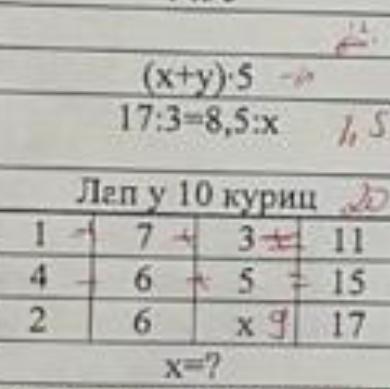 (x+y)·5
17:3=8,5:x 1,5
Лап у 10 куриц 20
1 + 7 + 3 = 11
4 + 6 + 5 = 15
2 6 x 9 17
x=?